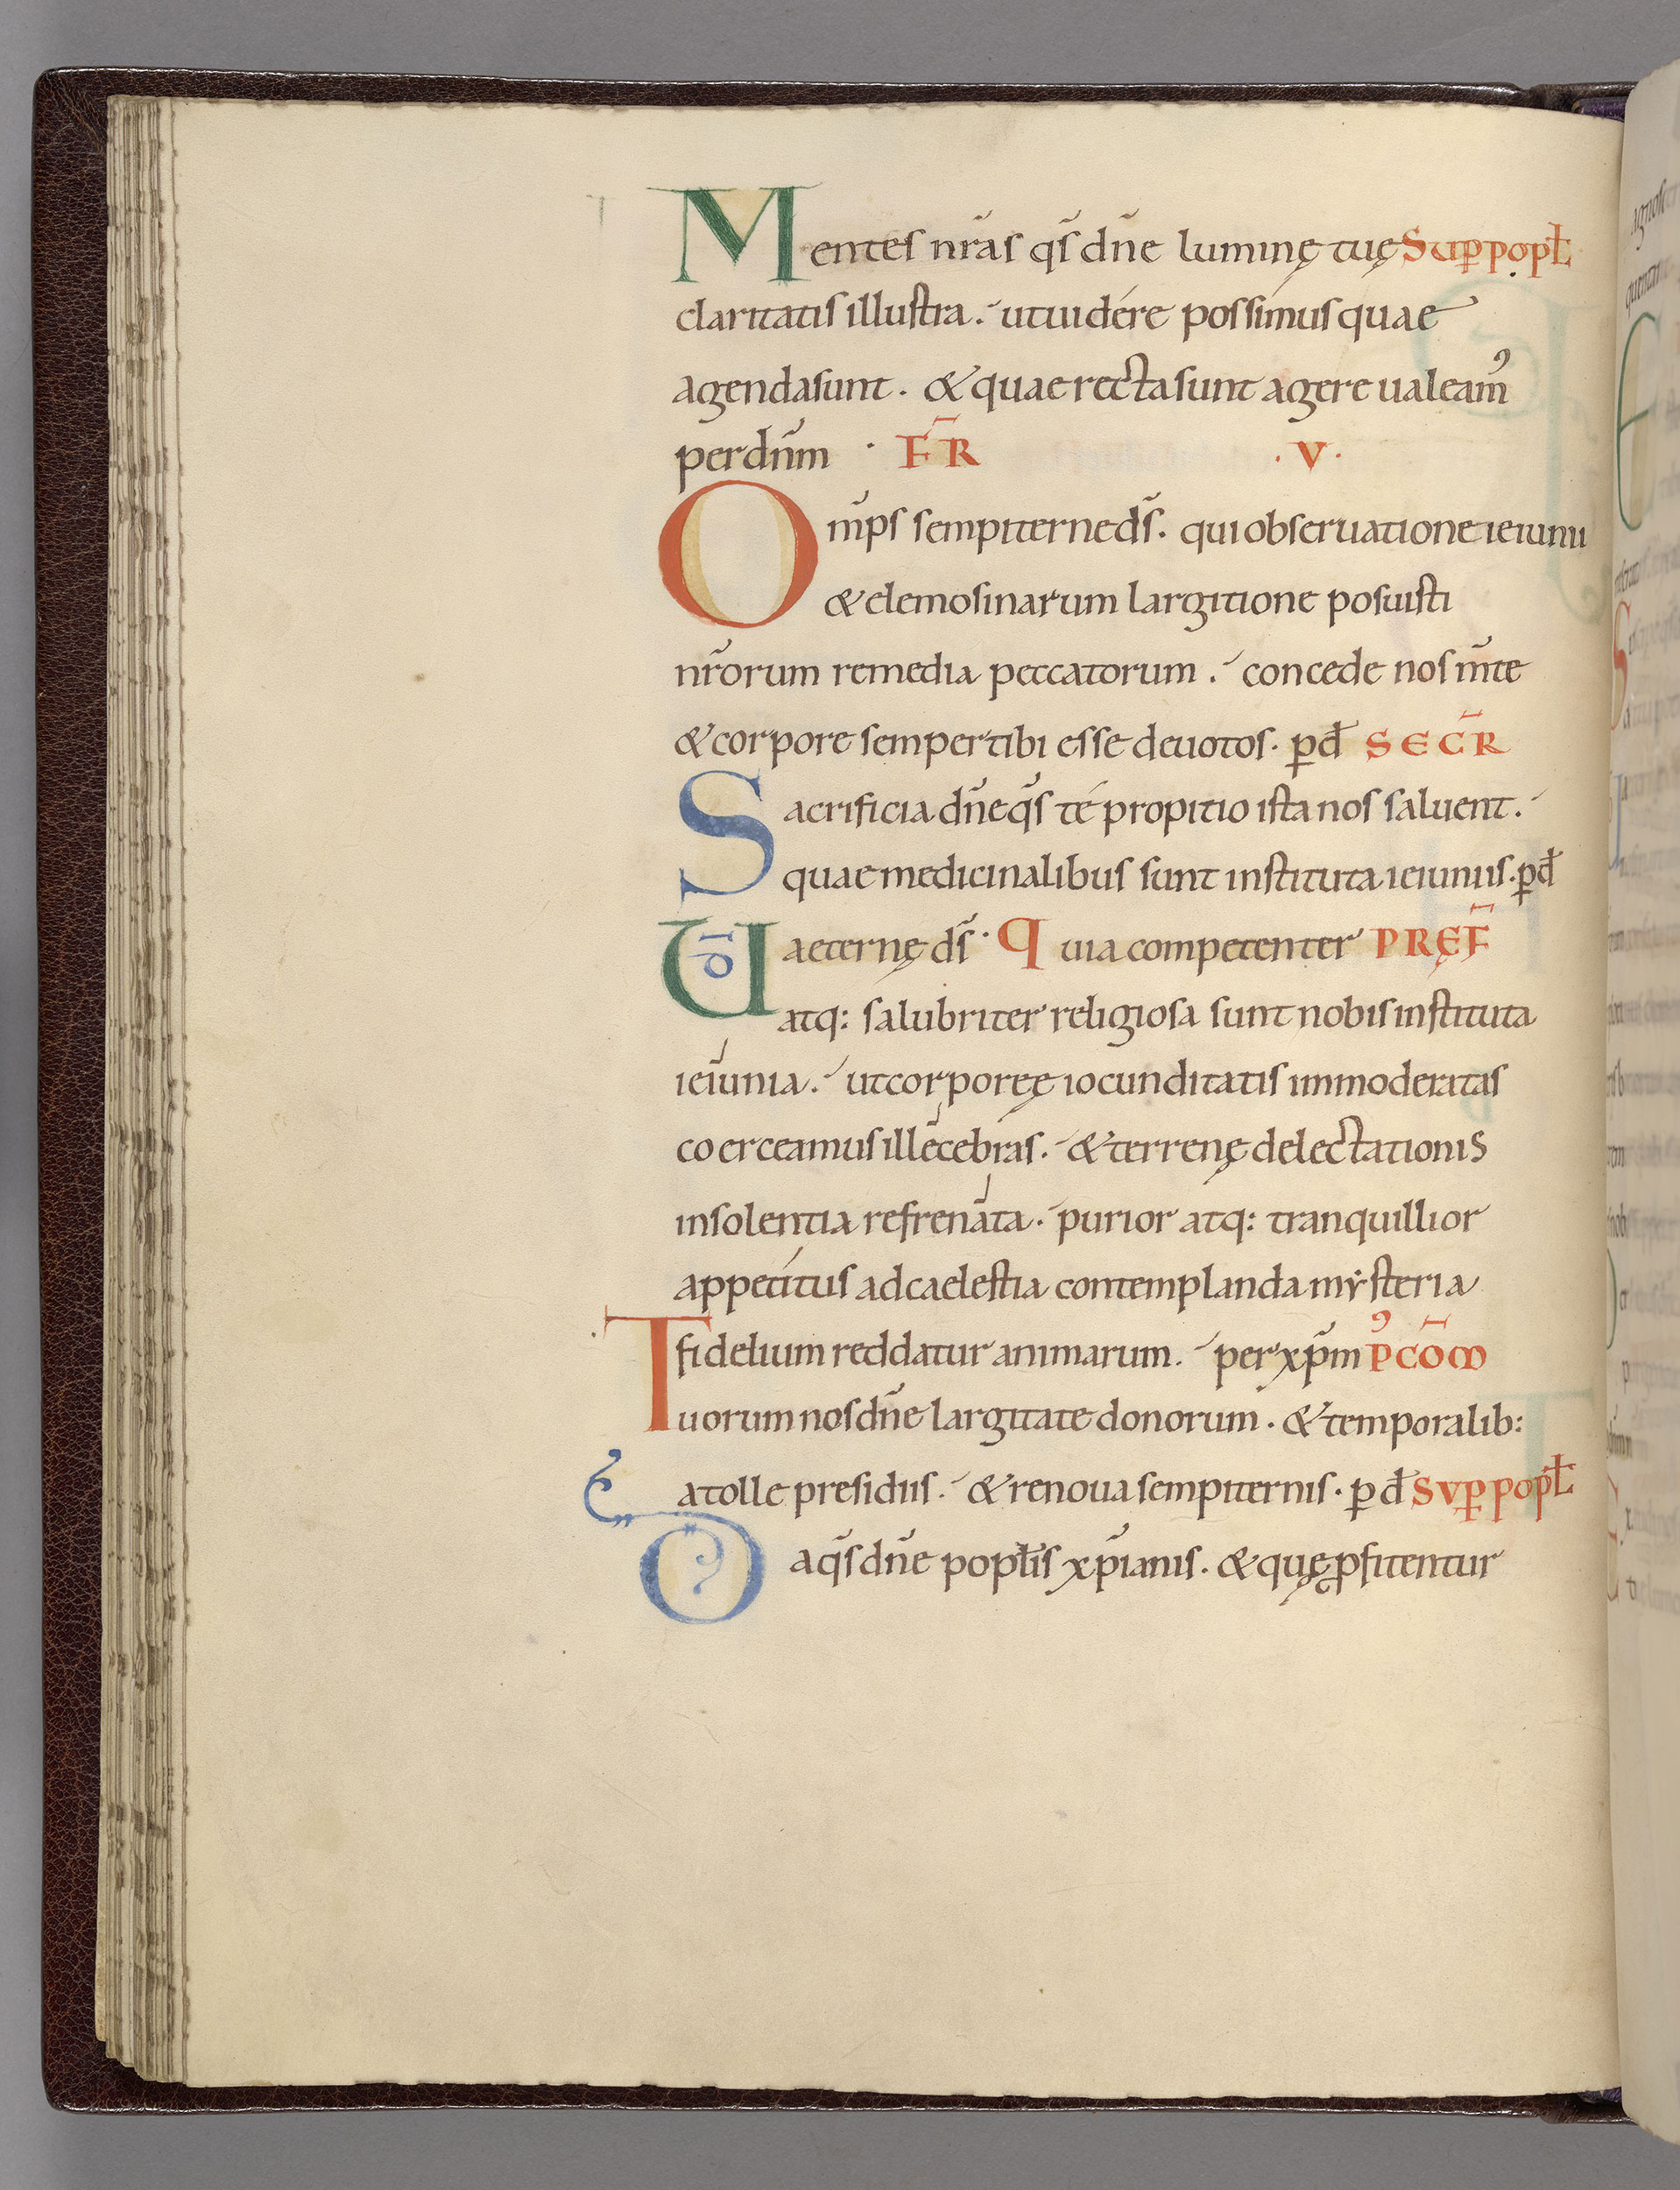 Mentes nr̃as qs̃ dñe luminę tuę Sup̱ popł
claritatis illustra. utuidére possímus quae
agendasunt. & quae recta sunt agere ualeamꝰ
perdn̄m · F̄R · V ·
Om̄ps sempiterne ds̄. qui obseruatione ieiunii
& elemosinarum largitione posuisti
nr̄orum remedia peccatorum. concede nos m̄te
& corpore semper tibi esse deuotos. ꝑđ SECR̄
Sacrificia dñe qs̃ té propitio ista nos saluent.
quae medicinalibus sunt instituta ieiuniis. ꝑđ
UD aeternę ds̄. Quia competenter PRĘF̄
atq: salubriter religiosa sunt nobis instituta
ieiunia. ut corporeę iocunditatis immoderatas
coerceamus illecebras. & terrenę delectationis
insolentia refrenata. purior atq: tranquillior
appetítus ad caelestia contemplanda mẏsteria
fidelium reddatur animarum. per xp̄m PꝰCŌM
Tuorum nos dñe largitate donorum. & temporalib:
atolle presidiis. & renoua sempiternis. ꝑđ SVꝑ popł
Da qs̃ dñe popłis xp̄ianis. & quę ꝓfitentur